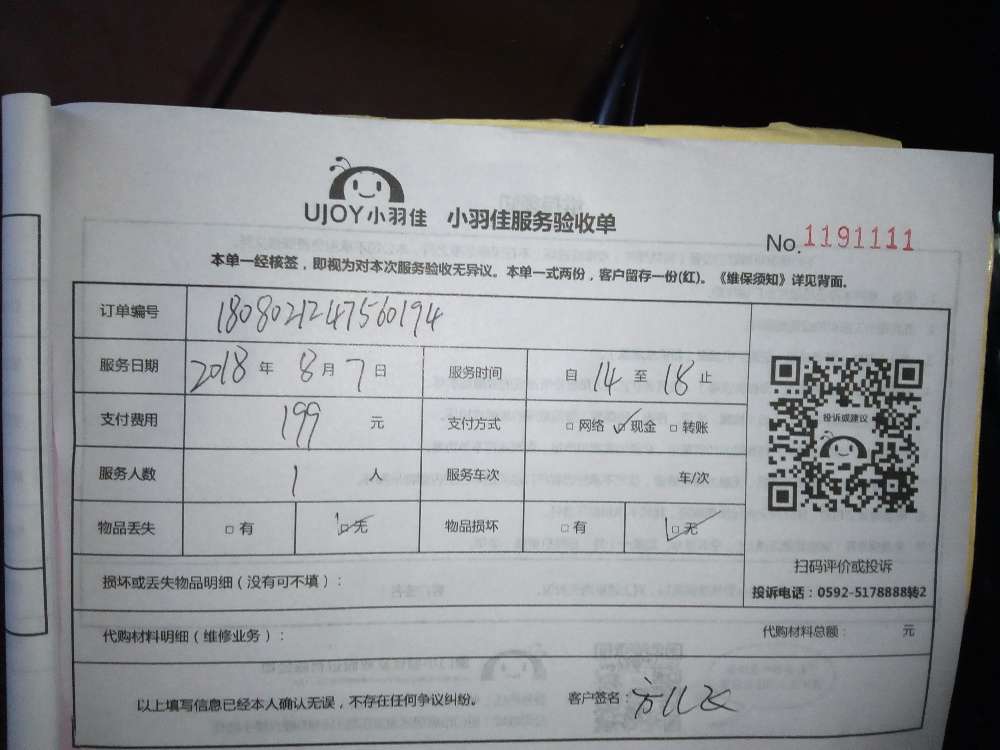 UJOY小羽佳 小羽佳服务验收单
No.1191111
本单一经核签，即视为对本次服务验收无异议。本单一式两份，客户留存一份(红)。《维保须知》详见背面。
订单编号 1808021247560194
服务日期 2018年8月7日 服务时间 自14至18止
支付费用 199元 支付方式 □网络 ☑现金 □转账
服务人数 1人 服务车次 车/次
物品丢失 □有 ☑无 物品损坏 □有 ☑无
投诉或建议
扫码评价或投诉
投诉电话：0592-5178888转2
损坏或丢失物品明细（没有可不填）：
代购材料明细（维修业务）： 代购材料总额： 元
以上填写信息已经本人确认无误，不存在任何争议纠纷。 客户签名：